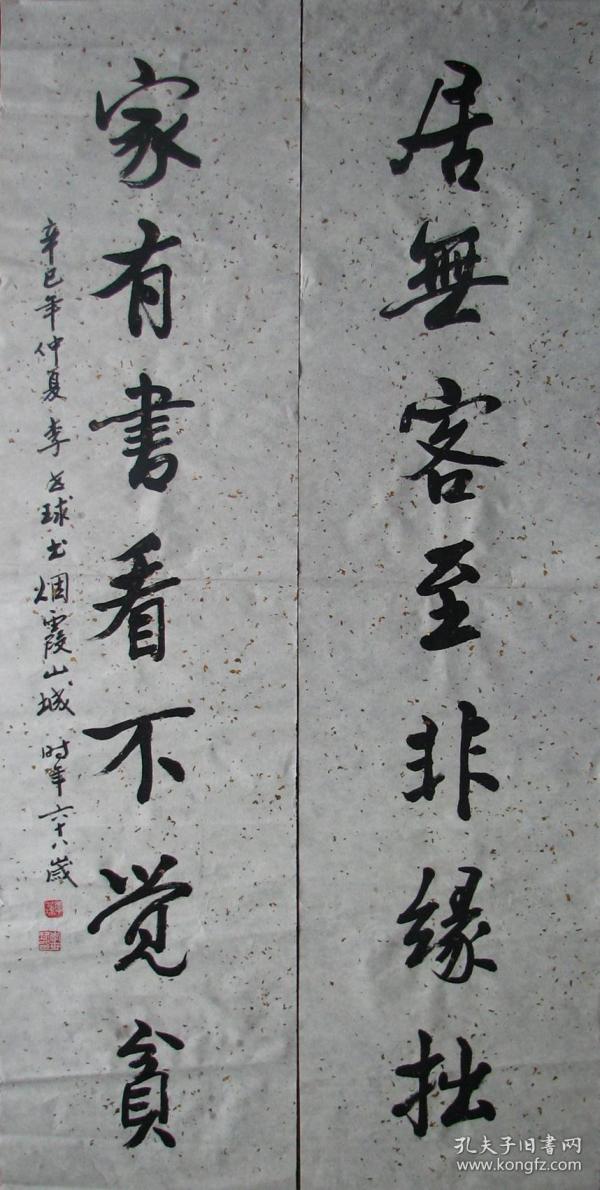 居無客至非緣拙
家有書看不觉貧
辛巳年仲夏 李 球书烟霞山城 时年六十八歲
孔夫子旧書网
www.kongfz.com